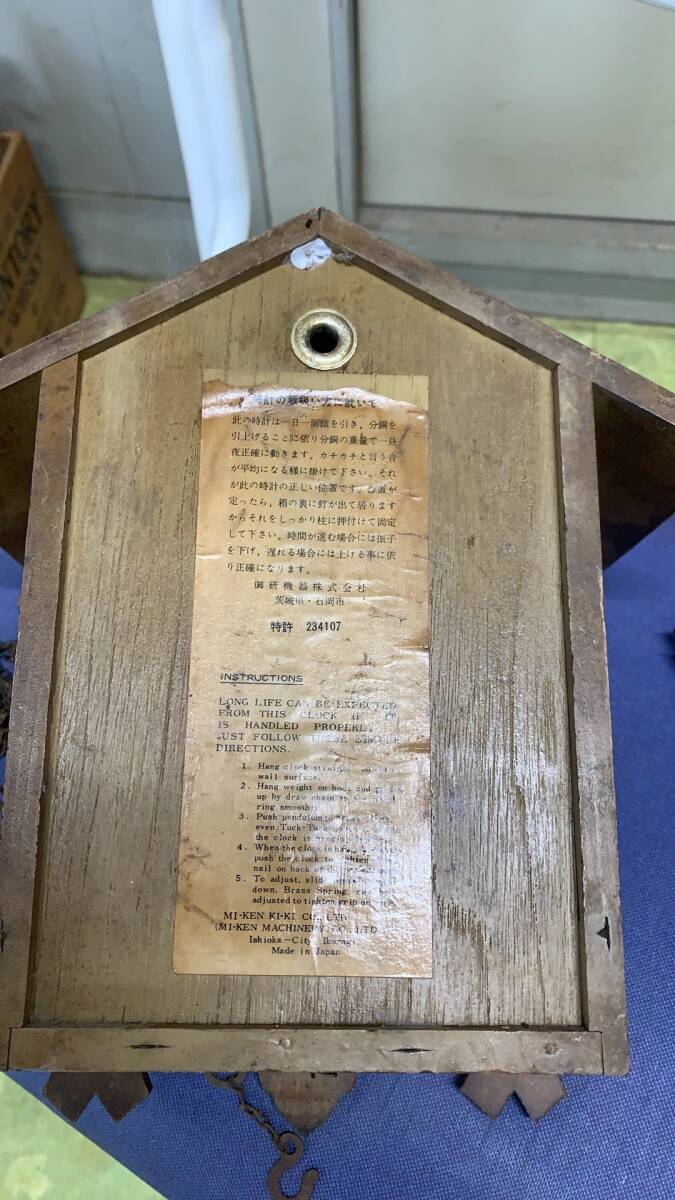 NTORY
時計の取扱い方に就いて
此の時計は一日一回鎖を引き，分銅を
引上げることに依り分銅の重量で一昼
夜正確に動きます。カチカチと言う音
が平均になる様に掛けて下さい。それ
が此の時計の正しい位置です。位置が
定ったら，箱の裏に釘が出て居ります
からそれをしっかり柱に押付けて固定
して下さい。時間が進む場合には振子
を下げ，遅れる場合には上げる事に依
り正確になります。
御研機器株式会社
茨城県・石岡市
特許 234107
INSTRUCTIONS
LONG LIFE CAN BE EXPECTED
FROM THIS CLOCK IF IT
IS HANDLED PROPERLY
JUST FOLLOW THESE SIMPLE
DIRECTIONS.
1. Hang clock straight
wall surface.
2. Hang weight on hook and
up by draw chain to
ring smoothly
3. Push pendulum to
even, Tuck-Tu
the clock is hanging
4. When the clock is
push the clock to tighten
nail on back of
5. To adjust, slide
down. Brass Spring
adjusted to tighten grip on
MI-KEN KI-KI CO., LTD
(MI-KEN MACHINERY CO., LTD
Ishioka-City Ibaragi
Made in Japan